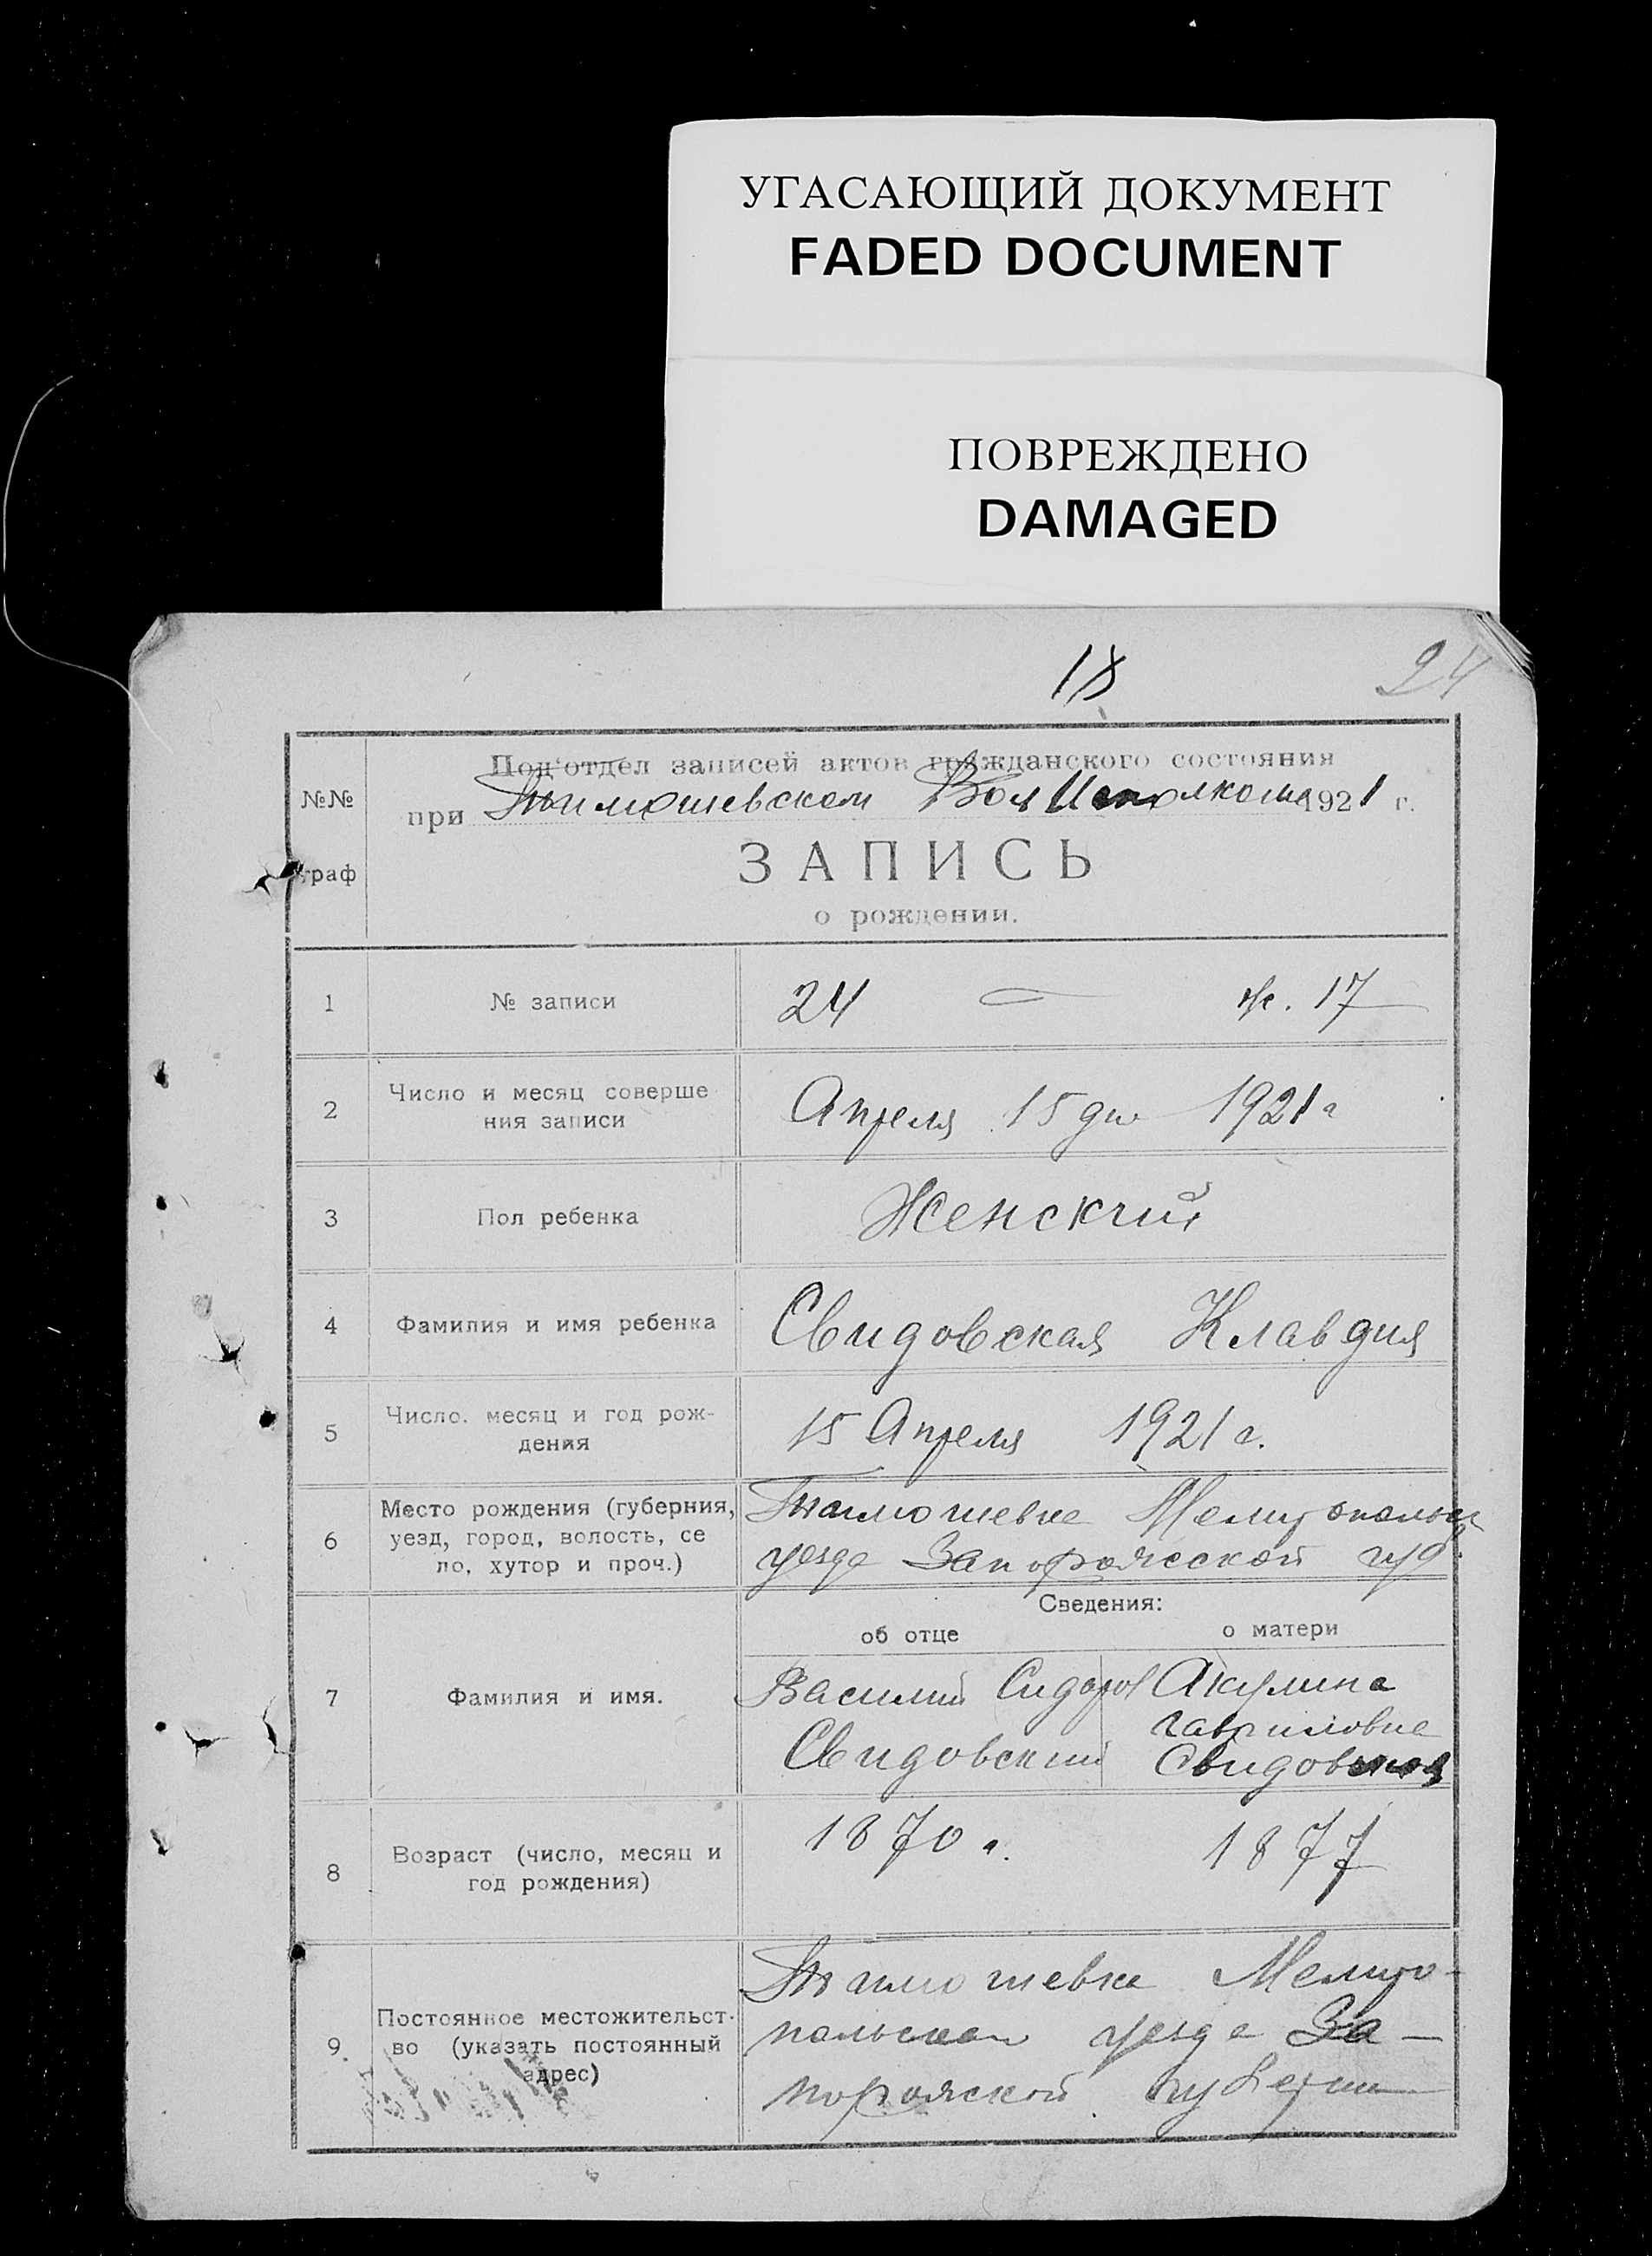 УГАСАЮЩИЙ ДОКУМЕНТ
FADED DOCUMENT
ПОВРЕЖДЕНО
DAMAGED
18
24
Под‘отдел записей актов гражданского состояния
№№ граф
при Тимошевском Вол Исполкоме 1921 г.
ЗАПИСЬ
о рождении.
1 № записи 24 — ж. 17
2 Число и месяц соверше
ния записи
Апреля 15 дня 1921 г
3 Пол ребенка Женский
4 Фамилия и имя ребенка Свидовская Клавдия
5 Число. месяц и год рож-
дения
15 Апреля 1921 г.
6 Место рождения (губерния,
уезд, город, волость, се
ло, хутор и проч.)
Тимошевке Мелитопольск
уезда Запорожской губ
Сведения:
об отце о матери
7 Фамилия и имя.
Василий Сидоров
Свидовский
Акулина
Гавриловна
Свидовская
8 Возраст (число, месяц и
год рождения)
1870 г. 1877
9. Постоянное местожительст-
во (указать постоянный
адрес)
Тимошевке Мелито-
польского уезда За-
порожской губернии